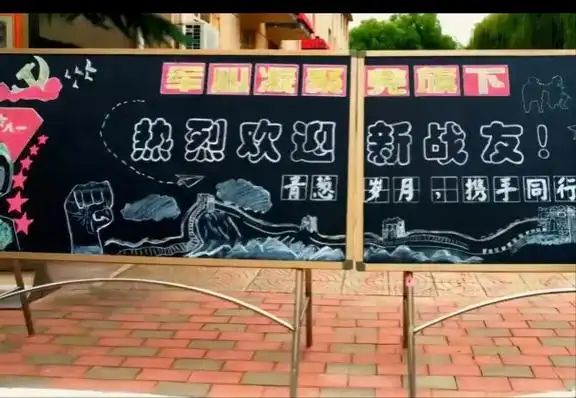 军心凝聚党旗下
八一
热烈欢迎新战友!
青葱岁月,携手同行